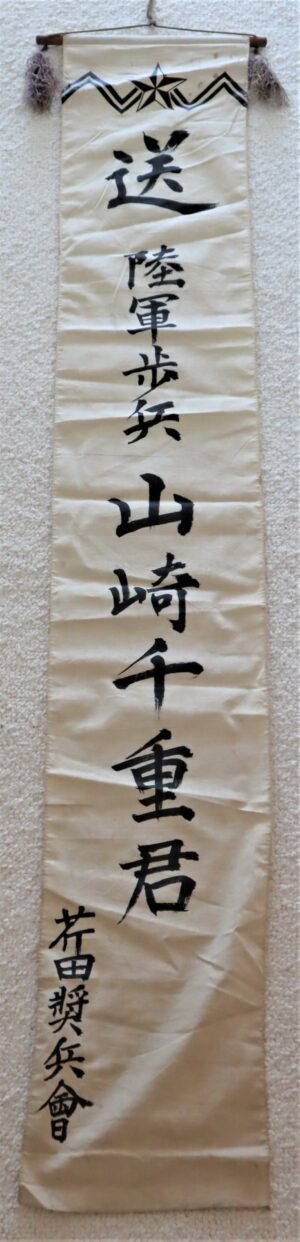 送 陸軍歩兵 山崎千重君
芥田奨兵會